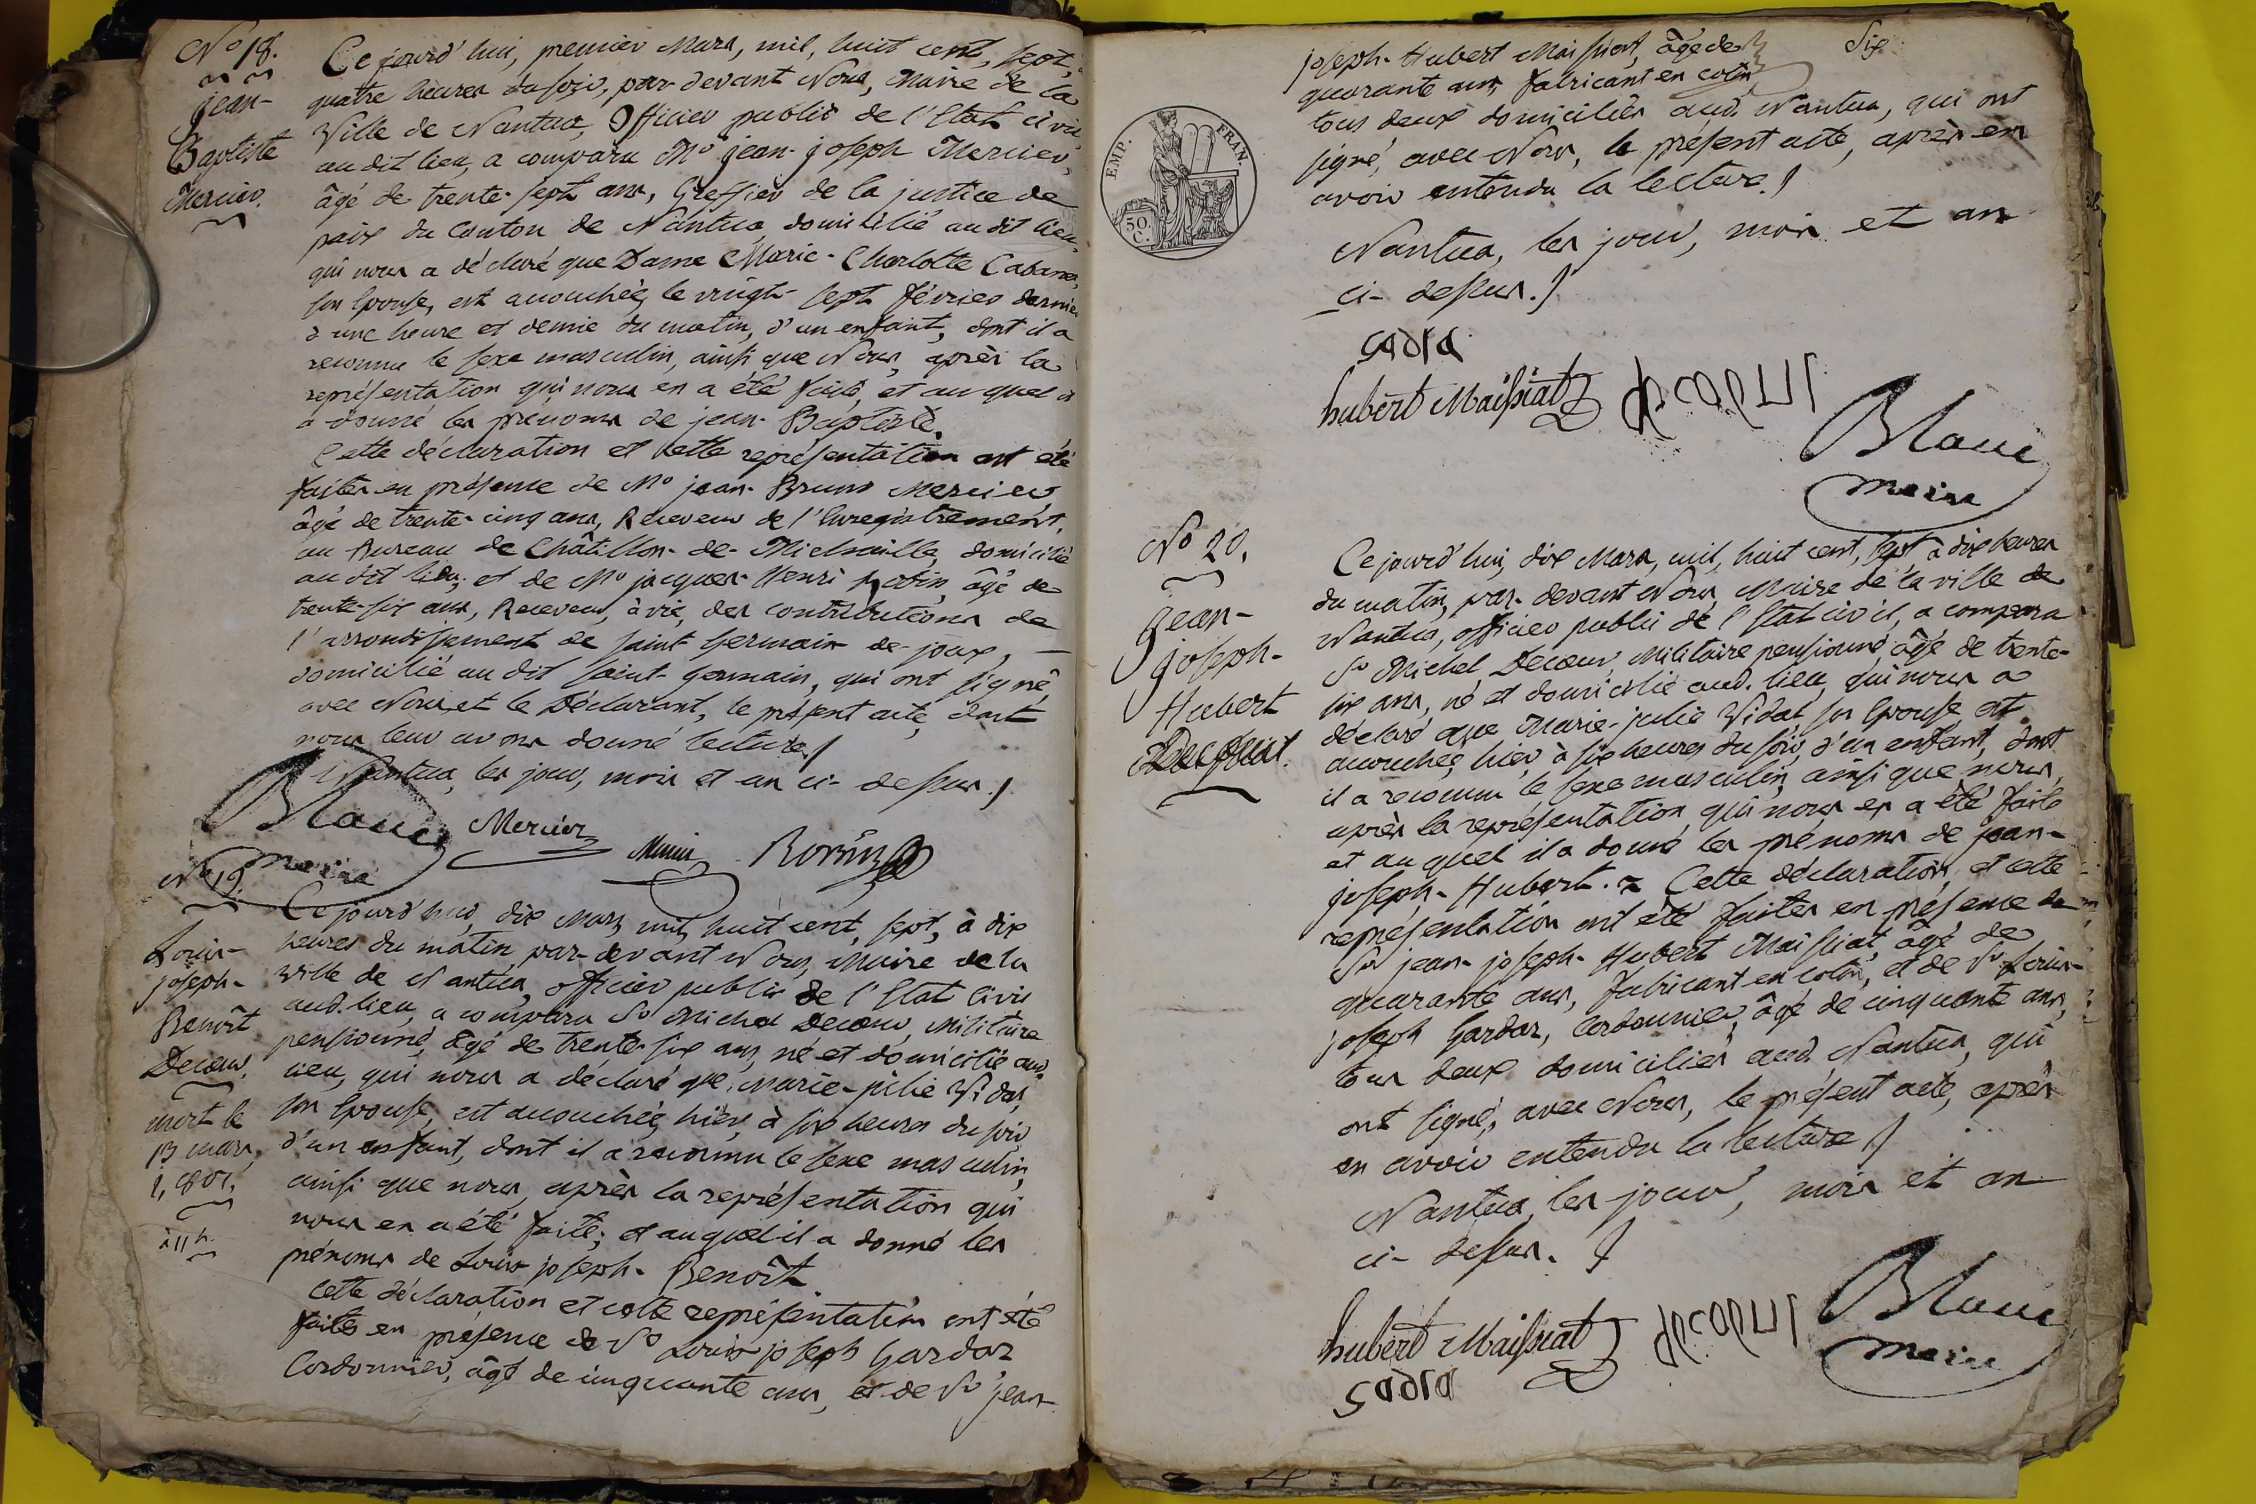 No 18.
Jean-
Baptiste
Mercier.
Ce jourd'hui, premier Mars, mil, huit cent, sept,
quatre heures du soir, par-devant Nous, Maire de la
Ville de Nantua, Officier public de l'Etat civil
audit lieu, a comparu Mr jean-joseph Mercier,
âgé de trente-sept ans, Greffier de la justice de
paix du Canton de Nantua, domicilié audit lieu,
qui nous a déclaré que Dame Marie-Charlotte Cabanes,
son Epouse, est accouchée, le vingt-sept février dernier
à une heure et demie du matin, d'un enfant, dont il a
reconnu le sexe masculin, ainsi que Nous, après la
représentation qui nous en a été faite, et auquel il
a donné les prénoms de jean-Baptiste.
Cette déclaration et cette représentation ont été
faites en présence de Mr jean-Bruno Mercier
âgé de trente-cinq ans, Receveur de l'Enregistrement,
au Bureau de Châtillon-de-Michaille, domicilié
audit lieu; et de Mr jacques-Henri Robin, âgé de
trente-six ans, Receveur, à vie, des contributions de
l'arrondissement de saint Germain de-joux,
domicilié audit saint-germain, qui ont signé,
avec Nous et le Déclarant, le présent acte, dont
nous leur avons donné lecture./
Nantua, les jour, mois et an ci-dessus./
Blanc
maire
Mercier
Robin
No 19.
Louis-
joseph-
Benoît
Decœur.
mort le
13 mars,
à 11 h.
Ce jourd'hui, dix Mars, mil, huit cent, sept, à dix
heures du matin, par-devant Nous, Maire de la
ville de Nantua, officier public de l'Etat civil
aud. lieu, a comparu Sr Michel Decœur, Militaire
pensionné, âgé de trente-six ans, né et domicilié aud.
lieu, qui nous a déclaré que Marie-julie Vidal,
son Epouse, est accouchée, hier, à six heures du soir,
d'un enfant, dont il a reconnu le sexe masculin,
ainsi que nous, après la représentation qui
nous en a été faite; et auquel il a donné les
prénoms de Louis-joseph-Benoît
Cette déclaration et cette représentation ont été
faites en présence de Sr Louis joseph Gardaz
Cordonnier, âgé de cinquante ans, et de Sr jean-
Six
joseph-Hubert Maissiat, âgé de
quarante ans, fabricant en coton
tous deux domiciliés aud. Nantua, qui ont
signé, avec Nous, le présent acte, après en
avoir entendu la lecture./
EMP. FRAN.
50.
C.
Nantua, les jour, mois et an
ci-dessus./
hubert Maissiat
Blanc
maire
No 20.
Jean-
joseph-
Hubert
Ce jourd'hui, dix Mars, mil, huit cent, sept à dix heures
du matin, par-devant Nous, Maire de la ville de
Nantua, officier public de l'Etat civil, a comparu
Sr Michel Decœur, Militaire pensionné, âgé de trente-
six ans, né et domicilié aud. lieu, qui nous a
déclaré que Marie-julie Vidal, son Epouse, est
accouchée, hier, à six heures du soir, d'un enfant, dont
il a reconnu le sexe masculin, ainsi que nous,
après la représentation, qui nous en a été faite
et auquel il a donné les prénoms de jean-
joseph-Hubert. Cette déclaration, et cette
représentation ont été faites en présence de
Sr jean-joseph-Hubert Maissiat, âgé de
quarante ans, fabricant en coton, et de Sr Louis-
joseph Gardaz, Cordonnier, âgé de cinquante ans,
tous deux domiciliés aud. Nantua, qui
ont signé, avec Nous, le présent acte, après
en avoir entendu la lecture./
Nantua, les jour, mois et an
ci-dessus./
hubert Maissiat
Blanc
maire